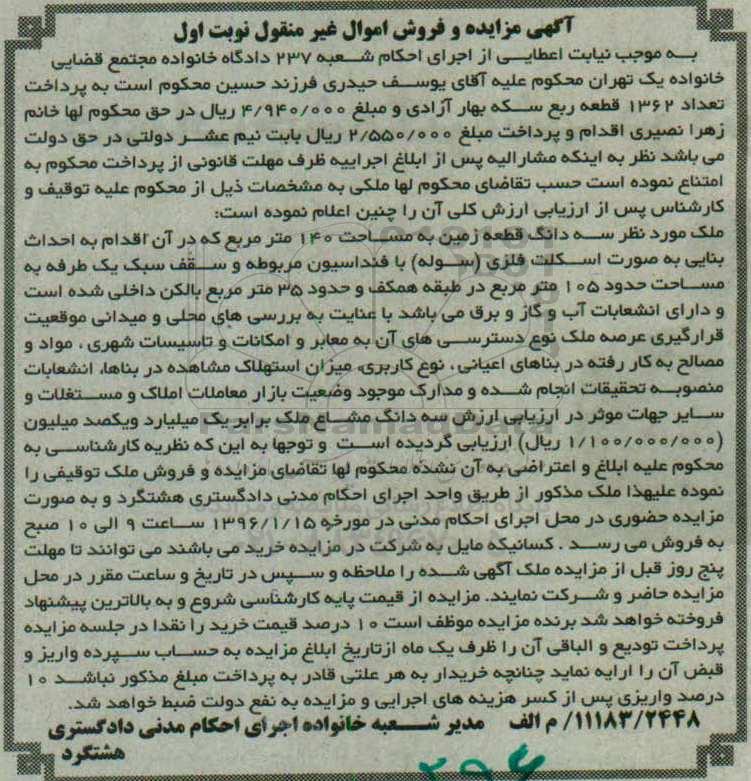 آگهی مزایده و فروش اموال غیر منقول نوبت اول
به موجب نیابت اعطایی از اجرای احکام شعبه ۲۳۷ دادگاه خانواده مجتمع قضایی
خانواده یک تهران محکوم علیه آقای یوسف حیدری فرزند حسین محکوم است به پرداخت
تعداد ۱۳۶۲ قطعه ربع سکه بهار آزادی و مبلغ ۴/۹۴۰/۰۰۰ ریال در حق محکوم لها خانم
زهرا نصیری اقدام و پرداخت مبلغ ۲/۵۵۰/۰۰۰ ریال بابت نیم عشر دولتی در حق دولت
می باشد نظر به اینکه مشارالیه پس از ابلاغ اجراییه ظرف مهلت قانونی از پرداخت محکوم به
امتناع نموده است حسب تقاضای محکوم لها ملکی به مشخصات ذیل از محکوم علیه توقیف و
کارشناس پس از ارزیابی ارزش کلی آن را چنین اعلام نموده است:
ملک مورد نظر سه دانگ قطعه زمین به مساحت ۱۴۰ متر مربع که در آن اقدام به احداث
بنایی به صورت اسکلت فلزی (سوله) با فنداسیون مربوطه و سقف سبک یک طرفه به
مساحت حدود ۱۰۵ متر مربع در طبقه همکف و حدود ۳۵ متر مربع بالکن داخلی شده است
و دارای انشعابات آب و گاز و برق می باشد با عنایت به بررسی های محلی و میدانی موقعیت
قرارگیری عرصه ملک نوع دسترسی های آن به معابر و امکانات و تاسیسات شهری ، مواد و
مصالح به کار رفته در بناهای اعیانی، نوع کاربری، میزان استهلاک مشاهده در بناها، انشعابات
منصوبه تحقیقات انجام شده و مدارک موجود وضعیت بازار معاملات املاک و مستغلات و
سایر جهات موثر در ارزیابی ارزش سه دانگ مشاع ملک برابر یک میلیارد ویکصد میلیون
(۱/۱۰۰/۰۰۰/۰۰۰ ریال) ارزیابی گردیده است و توجها به این که نظریه کارشناسی به
محکوم علیه ابلاغ و اعتراضی به آن نشده محکوم لها تقاضای مزایده و فروش ملک توقیفی را
نموده علیهذا ملک مذکور از طریق واحد اجرای احکام مدنی دادگستری هشتگرد و به صورت
مزایده حضوری در محل اجرای احکام مدنی در مورخه ۱۳۹۶/۱/۱۵ ساعت ۹ الی ۱۰ صبح
به فروش می رسد . کسانیکه مایل به شرکت در مزایده خرید می باشند می توانند تا مهلت
پنج روز قبل از مزایده ملک آگهی شده را ملاحظه و سپس در تاریخ و ساعت مقرر در محل
مزایده حاضر و شرکت نمایند. مزایده از قیمت پایه کارشناسی شروع و به بالاترین پیشنهاد
فروخته خواهد شد برنده مزایده موظف است ۱۰ درصد قیمت خرید را نقدا در جلسه مزایده
پرداخت تودیع و الباقی آن را ظرف یک ماه ازتاریخ ابلاغ مزایده به حساب سپرده واریز و
قبض آن را ارایه نماید چنانچه خریدار به هر علتی قادر به پرداخت مبلغ مذکور نباشد ۱۰
درصد واریزی پس از کسر هزینه های اجرایی و مزایده به نفع دولت ضبط خواهد شد.
۱۱۱۸۳/۲۴۴۸/ م الف مدیر شعبه خانواده اجرای احکام مدنی دادگستری
هشتگرد